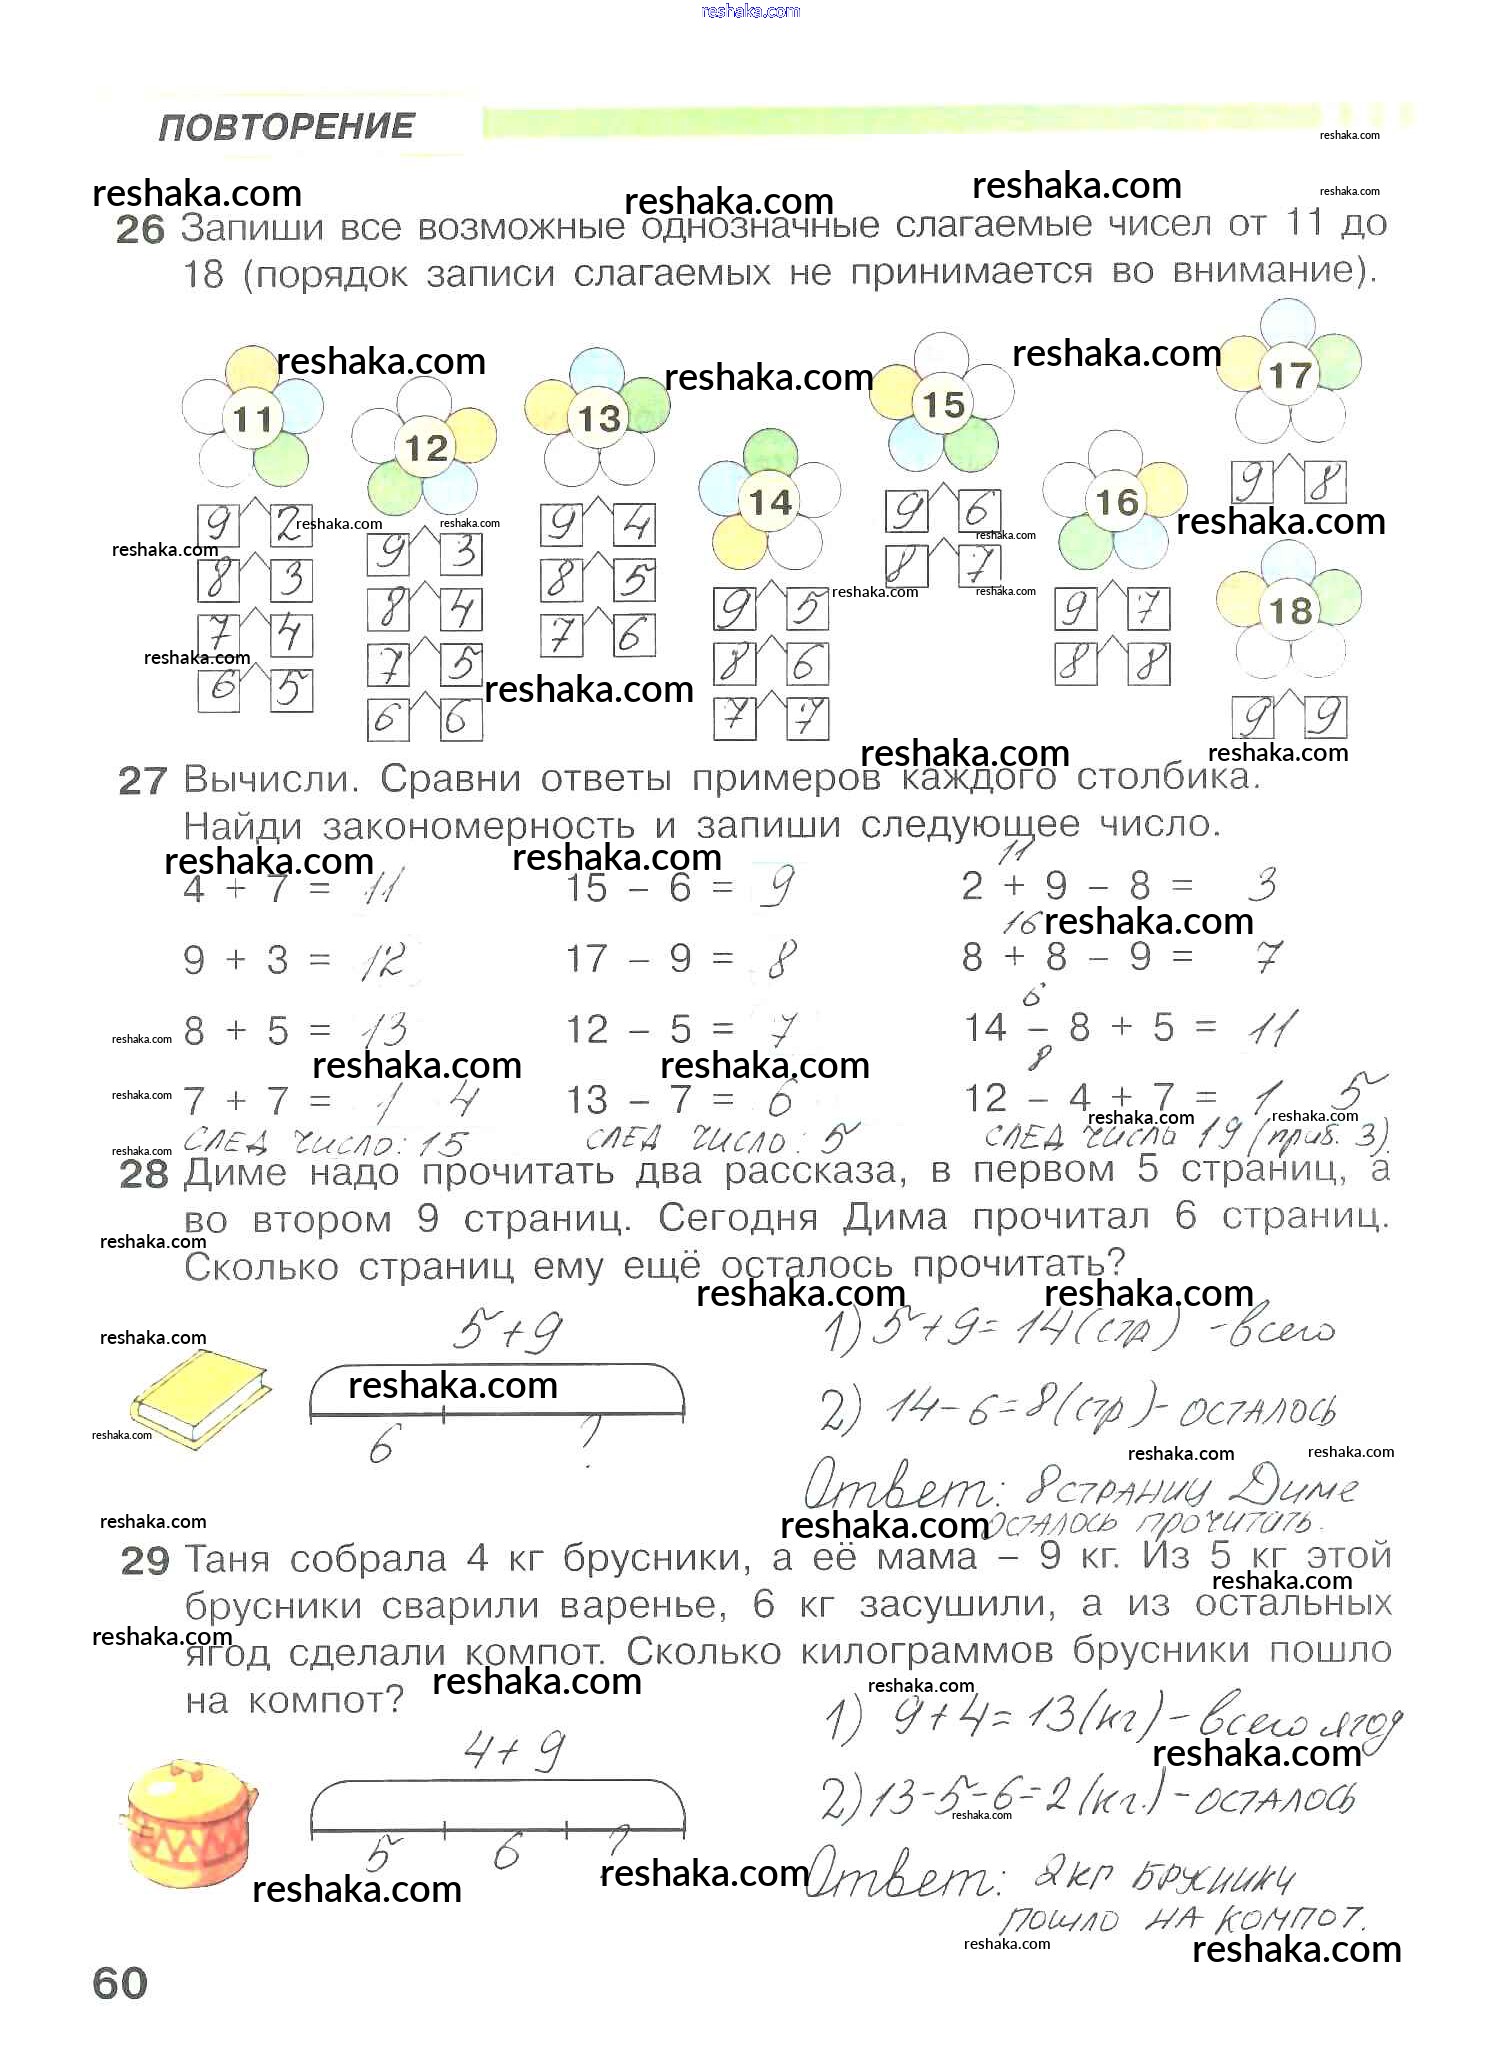 reshaka.com
ПОВТОРЕНИЕ
reshaka.com
reshaka.com reshaka.com reshaka.com reshaka.com
26 Запиши все возможные однозначные слагаемые чисел от 11 до
18 (порядок записи слагаемых не принимается во внимание).
reshaka.com reshaka.com reshaka.com
11 12 13 14 15 16 17 18
9 2
8 3
7 4
6 5
9 3
8 4
7 5
6 6
9 4
8 5
7 6
9 5
8 6
7 7
9 6
8 7
9 7
8 8
9 8
9 9
reshaka.com reshaka.com reshaka.com reshaka.com
reshaka.com reshaka.com reshaka.com
reshaka.com reshaka.com
reshaka.com reshaka.com
27 Вычисли. Сравни ответы примеров каждого столбика.
Найди закономерность и запиши следующее число.
reshaka.com reshaka.com 11
4 + 7 = 11 15 – 6 = 9 2 + 9 – 8 = 3
16 reshaka.com
9 + 3 = 12 17 – 9 = 8 8 + 8 – 9 = 7
6
reshaka.com 8 + 5 = 13 12 – 5 = 7 14 – 8 + 5 = 11
reshaka.com reshaka.com 8
reshaka.com 7 + 7 = 1 4 13 – 7 = 6 12 – 4 + 7 = 1 5
reshaka.com reshaka.com
reshaka.com СЛЕД ЧИСЛО: 15 СЛЕД ЧИСЛО: 5 СЛЕД ЧИСЛЬ 19 (приб. 3).
28 Диме надо прочитать два рассказа, в первом 5 страниц, а
во втором 9 страниц. Сегодня Дима прочитал 6 страниц.
reshaka.com
Сколько страниц ему ещё осталось прочитать?
reshaka.com reshaka.com
reshaka.com 5+9 1) 5+9=14(стр) -всего
reshaka.com
6 ? 2) 14-6=8(стр)-ОСТАЛОСЬ
reshaka.com reshaka.com reshaka.com
Ответ: 8 СТРАНИЦ Диме
reshaka.com reshaka.com ОСТАЛОСЬ ПРОЧИТАТЬ.
29 Таня собрала 4 кг брусники, а её мама – 9 кг. Из 5 кг этой
reshaka.com
брусники сварили варенье, 6 кг засушили, а из остальных
reshaka.com
ягод сделали компот. Сколько килограммов брусники пошло
reshaka.com reshaka.com
на компот?
1) 9+4=13(кг)-всего ягод
reshaka.com
4+9
2)13-5-6=2(кг.)-ОСТАЛОСЬ
reshaka.com
5 6 ?
reshaka.com reshaka.com Ответ: 2кг БРУСНИКИ
ПОШЛО НА КОМПОТ.
reshaka.com reshaka.com
60